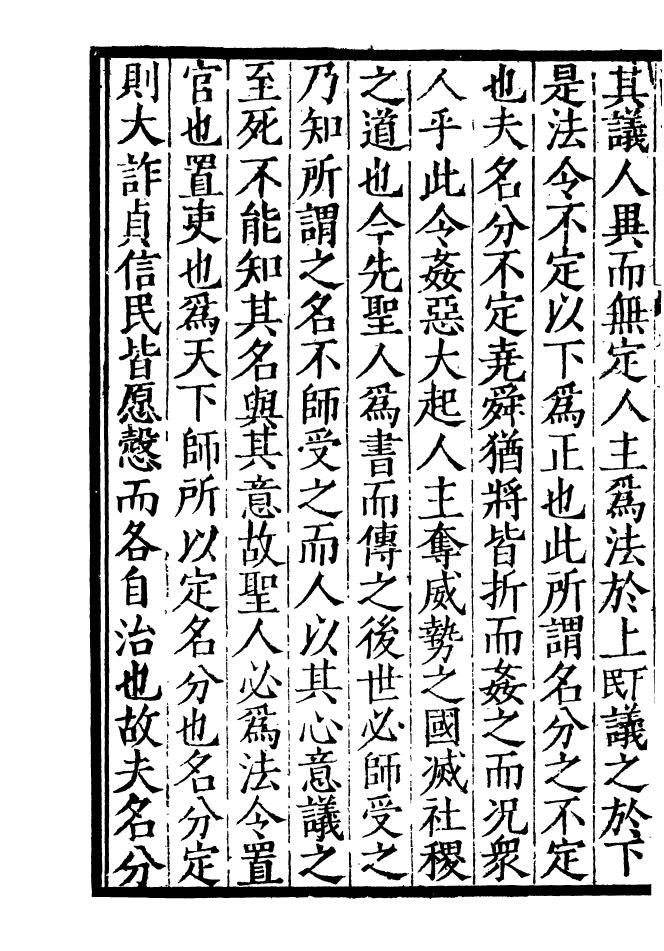 其議人異而無定人主爲法於上下民議之於下
是法令不定以下爲正也此所謂名分之不定
也夫名分不定堯舜猶將皆折而姦之而况衆
人乎此令姦惡大起人主奪威勢之國滅社稷
之道也今先聖人爲書而傳之後世必師受之
乃知所謂之名不師受之而人以其心意議之
至死不能知其名與其意故聖人必爲法令置
官也置吏也爲天下師所以定名分也名分定
則大詐貞信民皆愿慤而各自治也故夫名分